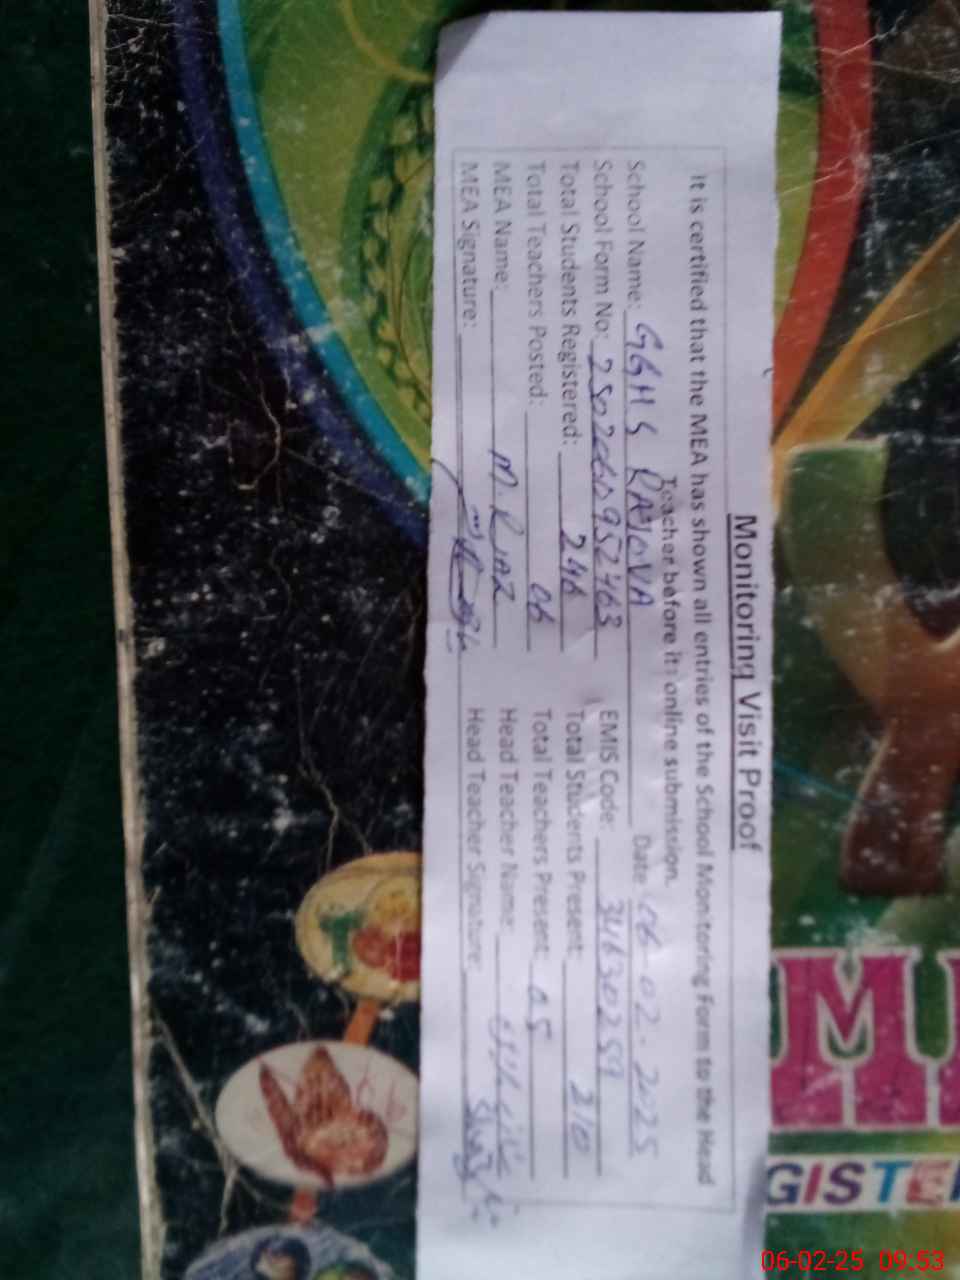 Monitoring Visit Proof
It is certified that the MEA has shown all entries of the School Monitoring Form to the Head
Teacher before its online submission.
School Name: GGHS Date 06-02-2025
School Form No: EMIS Code: 34630259
Total Students Registered: 246 Total Students Present: 210
Total Teachers Posted: 06 Total Teachers Present: 05
MEA Name: M. RIAZ Head Teacher Name:
MEA Signature: Head Teacher Signature:
M
GISTE
06-02-25 09:53